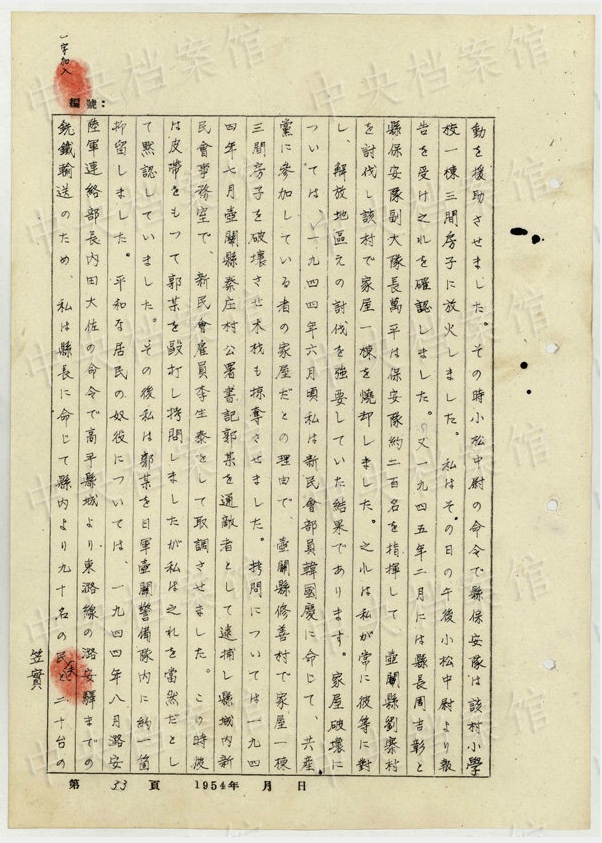 一字加入
編號：
動を援助させました。その時小松中尉の命令で縣保安隊は該村小學
校一棟三間房子に放火しました。私はその日の午後小松中尉より報
告を受け之れを確認しました。又一九四五年二月には縣長周吉彰と
縣保安隊副大隊長萬平は保安隊約二百名を指揮して壺關縣劉寨村
を討伐し該村で家屋一棟を燒却しました。之れは私が常に彼等に對
し、解放地區えの討伐を強要していた結果であります。家屋破壞に
ついては、一九四四年六月頃私は新民會部員韓國慶に命じて、共產
黨に參加している者の家屋だとの理由で、壺關縣修善村で家屋一棟
三間房子を破壞させ木材も掠奪させました。拷問については一九四
四年七月壺關縣秦庄村公署書記郭某を通敵者として逮捕し縣城内新
民會事務室で、新民會雇員李生泰をして取調させました。この時彼
は皮帶をもつて郭某を毆打し拷問しましたが私は之れを當然だとし
て黙認していました。その後私は郭某を日軍壺關警備隊内に約一箇
抑留しました。平和な居民の奴役については、一九四四年八月潞安
陸軍連絡部長内田大佐の命令で高平縣城より東潞線の潞安驛までの
銑鐵輸送のため、私は縣長に命じて縣内より九十名の民と二十台の
笠實
第 33 頁 1954年 月 日
中央档案馆